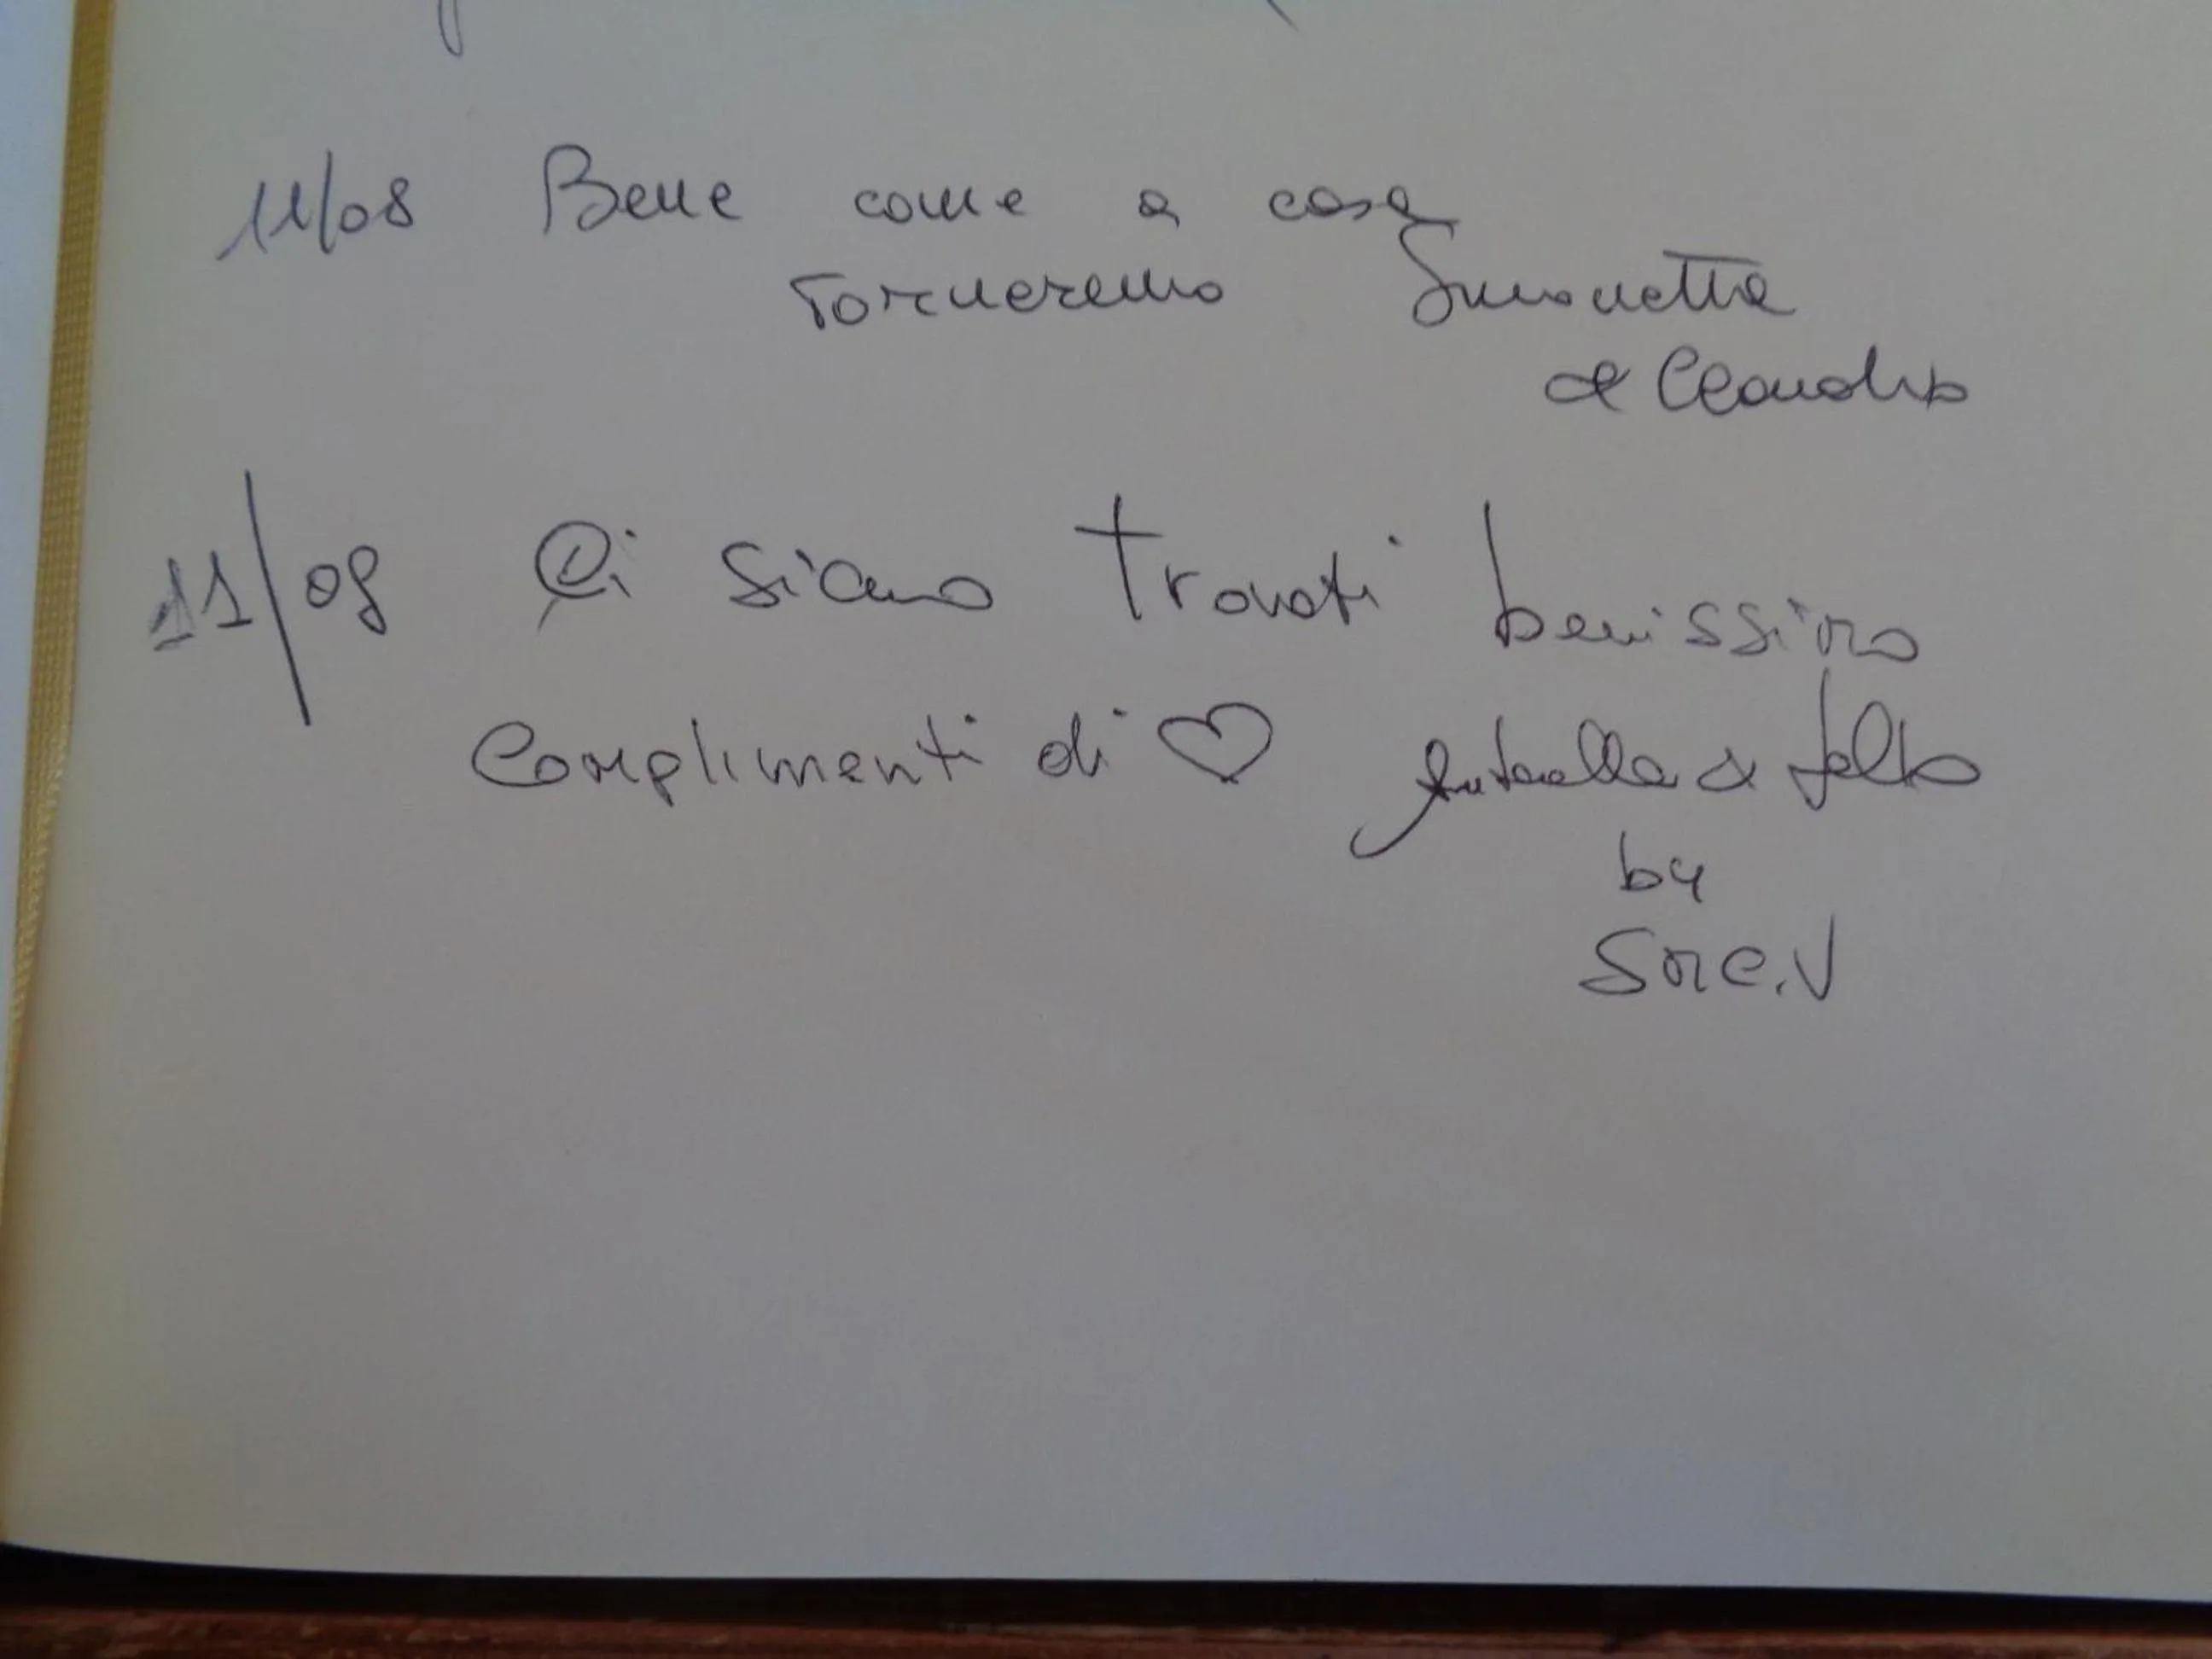 11/08 Bene come a casa
Torneremo Simonetta
& Claudio
11/08 Ci siamo trovati benissimo
Complimenti di ♡ Antonella &
by